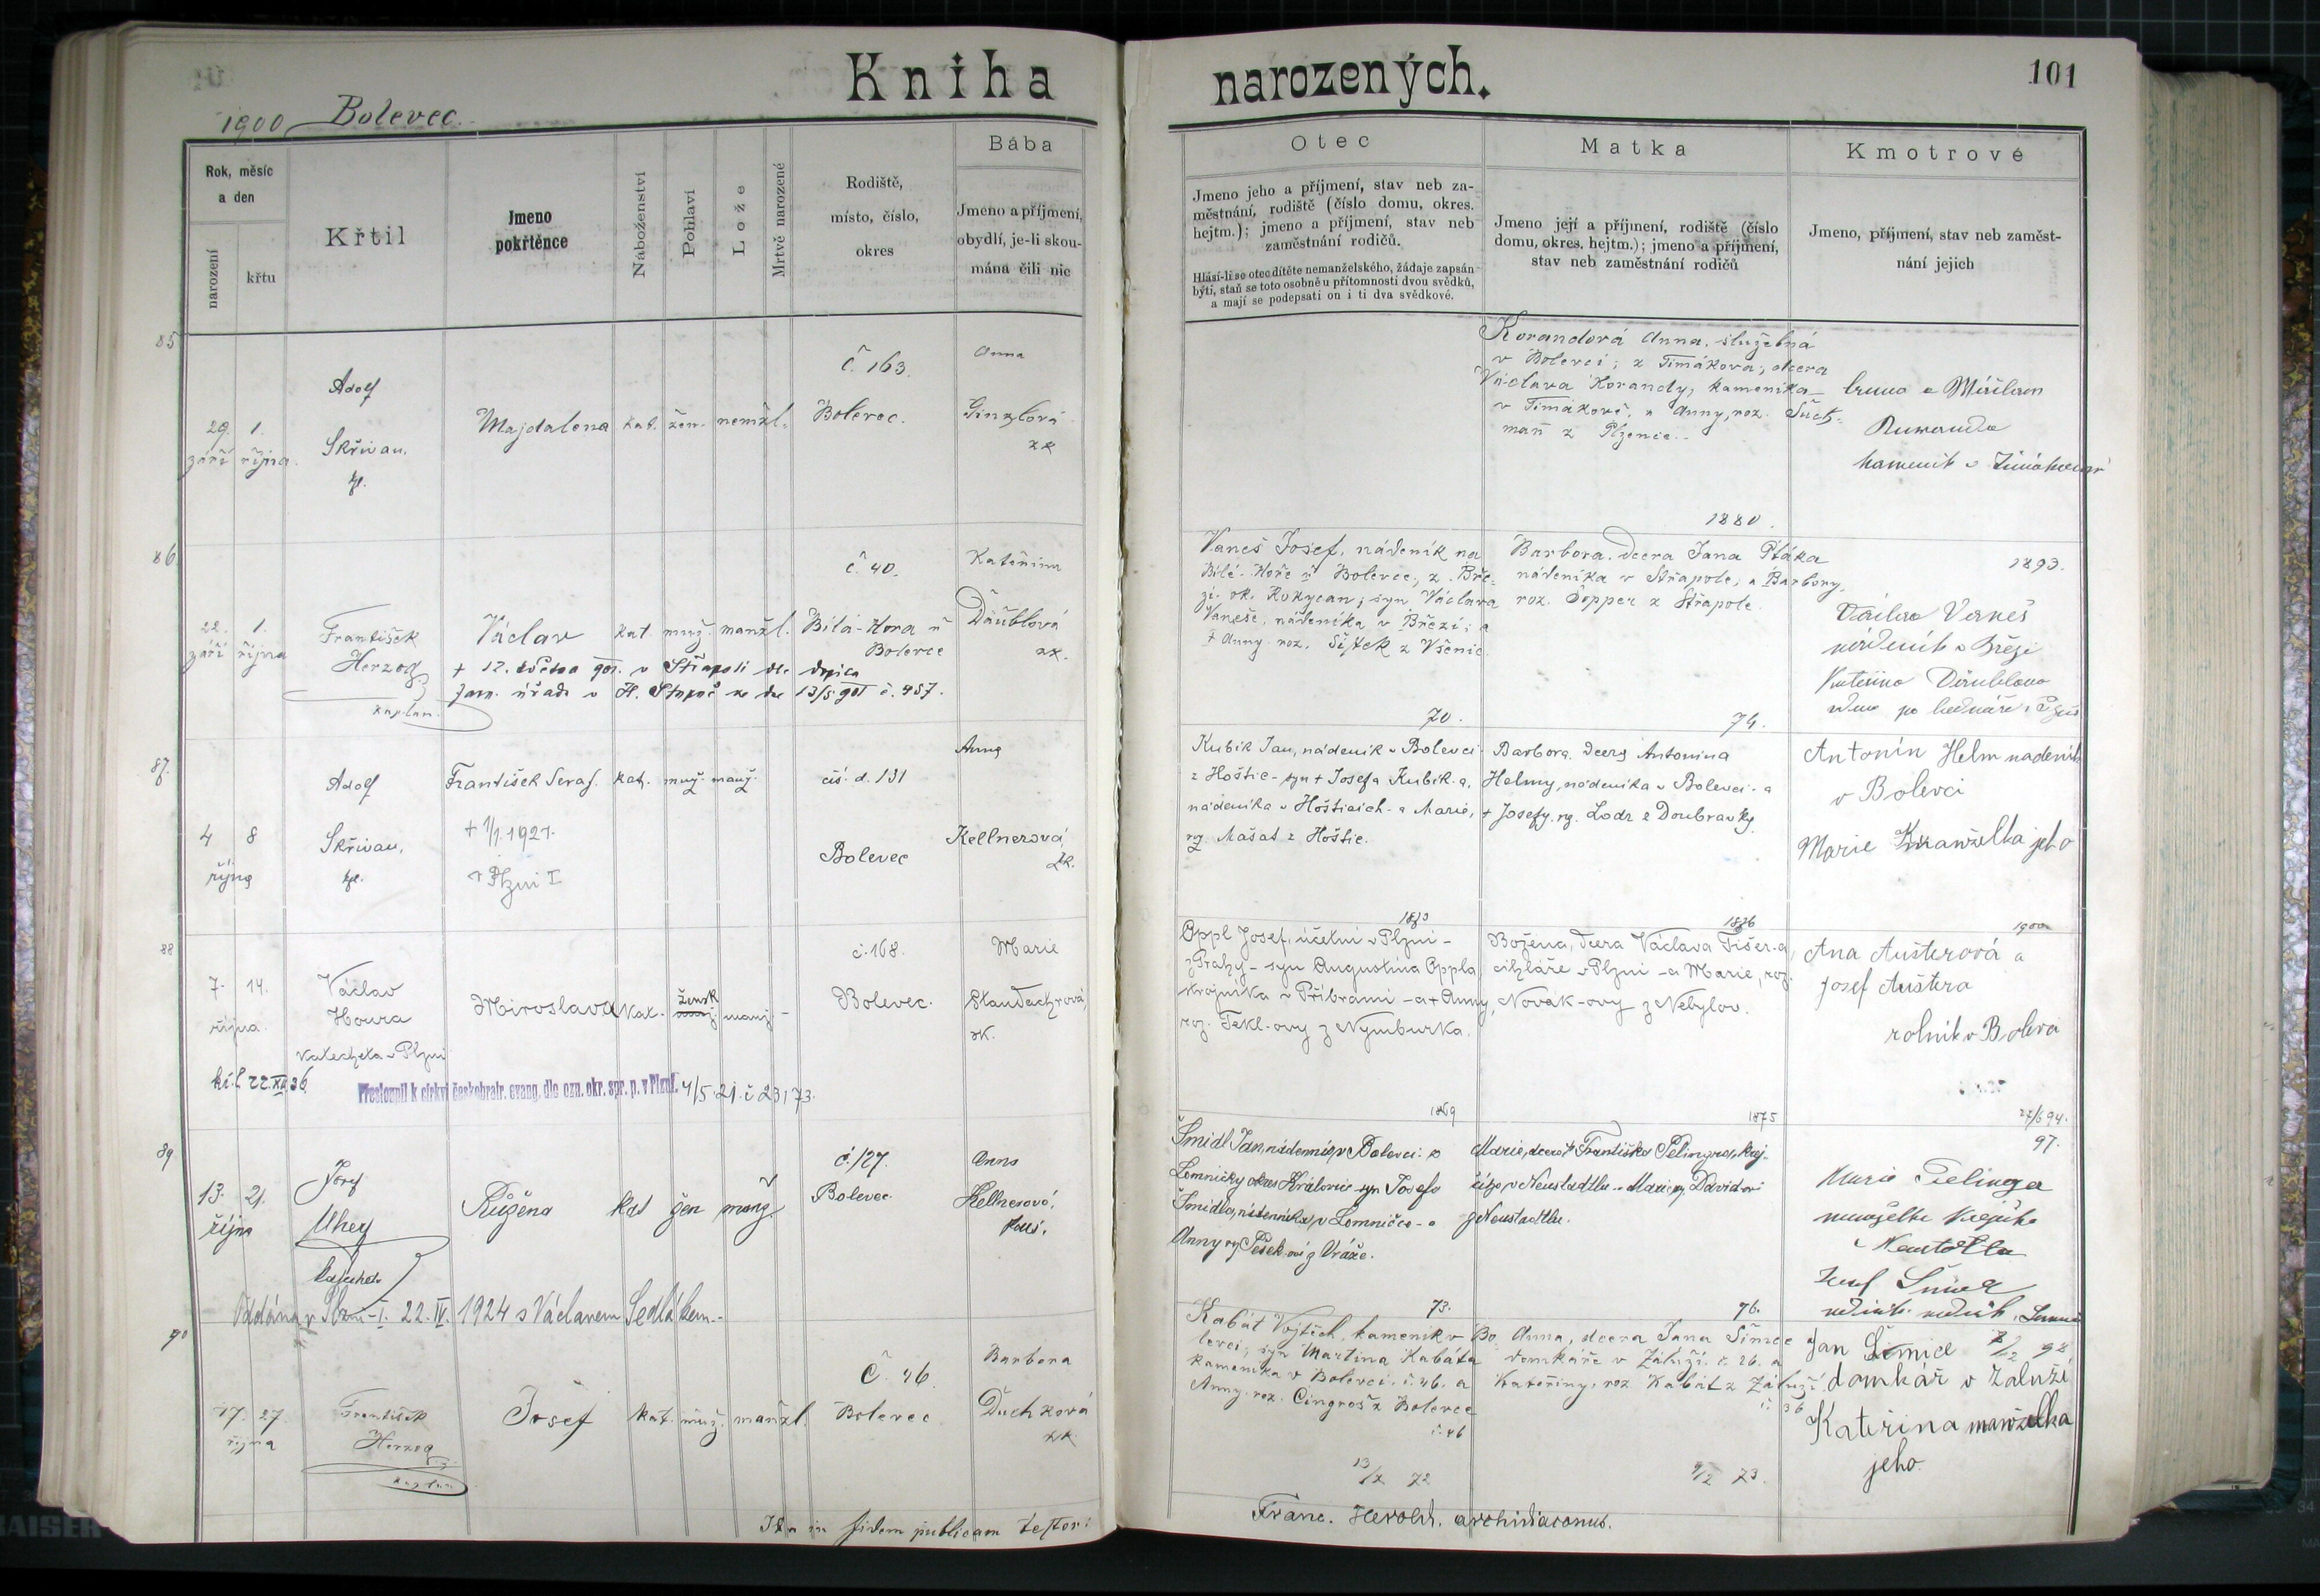 Kniha narozených.
101
1900 Bolevec.
Rok, měsíc a den
narození
křtu
Křtil
Jmeno pokřtěnce
Náboženství
Pohlaví
Lože
Mrtvě narozené
Rodiště, místo, číslo, okres
Bába
Jmeno a příjmení, obydlí, je-li skou-
mána čili nic
Otec
Jmeno jeho a příjmení, stav neb za-
městnání, rodiště (číslo domu, okres.
hejtm.); jmeno a příjmení, stav neb
zaměstnání rodičů.
Hlásí-li se otec dítěte nemanželského, žádaje zapsán
býti, staň se toto osobně u přítomnosti dvou svědků,
a mají se podepsati on i ti dva svědkové.
Matka
Jmeno její a příjmení, rodiště (číslo
domu, okres. hejtm.); jmeno a příjmení,
stav neb zaměstnání rodičů
Kmotrové
Jmeno, příjmení, stav neb zaměst-
nání jejich
85
29. září
1. října.
Adolf
Skřivan,
kp.
Majdalena
kat.
žen.
nemžl.
č. 163.
Bolevec.
Anna
Ginzlová
zk
Korandová Anna, služebná
v Bolevci; z Timákova, dcera
Václava Korandy, kameníka
v Timákově, a Anny, roz. Such-
man z Plzence.
1880.
86
22. září
1. října
František
Herzog
kaplan.
Václav
kat.
muž.
manžl.
č. 40.
Bílá-Hora u
Bolevce
Kateřina
Däublová
zk.
+ 12. května 901. v Střapoli dle dopisu
farn. úřadu v H. Stupně ze dne 13/5 901 č. 457.
Vaneš Josef, nádeník na
Bílé-Hoře u Bolevce, z Bře-
zí, ok. Rokycan, syn Václava
Vaneše, nádeníka v Březí, a
+ Anny roz. Šístek z Všenic.
Barbora, dcera Jana Ptáka
nádeníka v Střapole, a Barbory,
roz. Sopper z Střapole.
1893.
Václav Vaneš
nádeník v Březí
Kateřina Däublova
70.
74.
87.
4 října
8
Adolf
Skřivan,
kp.
František Seraf.
kat.
muž.
manž.
čís. d. 131
Bolevec
Anna
Kellnerová
zk.
+ 1/1. 1921.
v Plzni I
Kubík Jan, nádeník v Bolevci
z Hoštic - syn + Josefa Kubík-a,
nádeníka v Hošticích - a Marie,
roz. Mašat z Hoštic.
Barbora, dcera Antonína
Helmy, nádeníka v Bolevci - a
+ Josefy, roz. Lodr z Doubravky.
Antonín Helm nadeník
v Bolevci
Marie manželka jeho
88
7. října
14.
Václav
Houra
katecheta v Plzni
Miroslava
kat.
žensk
muž.
manž.
č. 168.
Bolevec.
Marie
Staudachrová,
zk.
22.XII.36.
Přestoupil k církvi českobratr. evang. dle ozn. okr. spr. p. v Plzni. 4/5. 21. č 23173.
1873
Oppl Josef, účetní v Plzni -
z Prahy - syn Augustina Oppla
krojníka v Příbrami - a + Anny,
roz. Tekl-ovy z Nymburka.
1876
Božena, dcera Václava Fišer-a,
cihláře v Plzni - a Marie, roz.
Novák-ovy z Nebylov.
1900
Ana Aušterová a
Josef Auštera
rolník v Bolevci
89
13. října
21.
Josef
Uhey
katecheta
Růžena
kat
žen
manž.
č. 127.
Bolevec.
Anna
Kellnerová,
Oddána v Plzni-I. 22. IV. 1924 s Václavem Sedlákem.-
1869
Šmidl Jan, nádenník v Bolevci z
Lomničky okres Kralovic syn Josefa
Šmidla, nádenníka v Lomničce - a
Anny roz. Pešek-ové z Dráže.
1875
Marie, dcera + Františka Pelingra, krej-
čího v Neustadtlu - a Marie roz. Davidové
z Neustadtlu.
27/6 94.
97.
Marie Pelinger
manželka krejčího
v Neustadtlu
Josef Šmidl
90
17. října
27.
František
Herzog
kaplan
Josef
kat.
muž.
manžl.
Č. 46.
Bolevec
Barbora
Duchková
zk
73.
Kabát Vojtěch, kameník v Bo-
levci, syn Martina Kabáta
kameníka v Bolevci, č. 46. a
Anny roz. Cingroš z Bolevce
č. 46
13/x 72
76.
Anna, dcera Jana Šimice
domkáře v Záluží č. 26. a
Kateřiny, roz. Kabát z Záluží
č. 36
9/2 73.
Jan Šimice 8/2 98
domkář v Zaluží
Kateřina manželka
jeho.
Ita in fidem publicam testor:
Franc. Herold. archidiaconus.